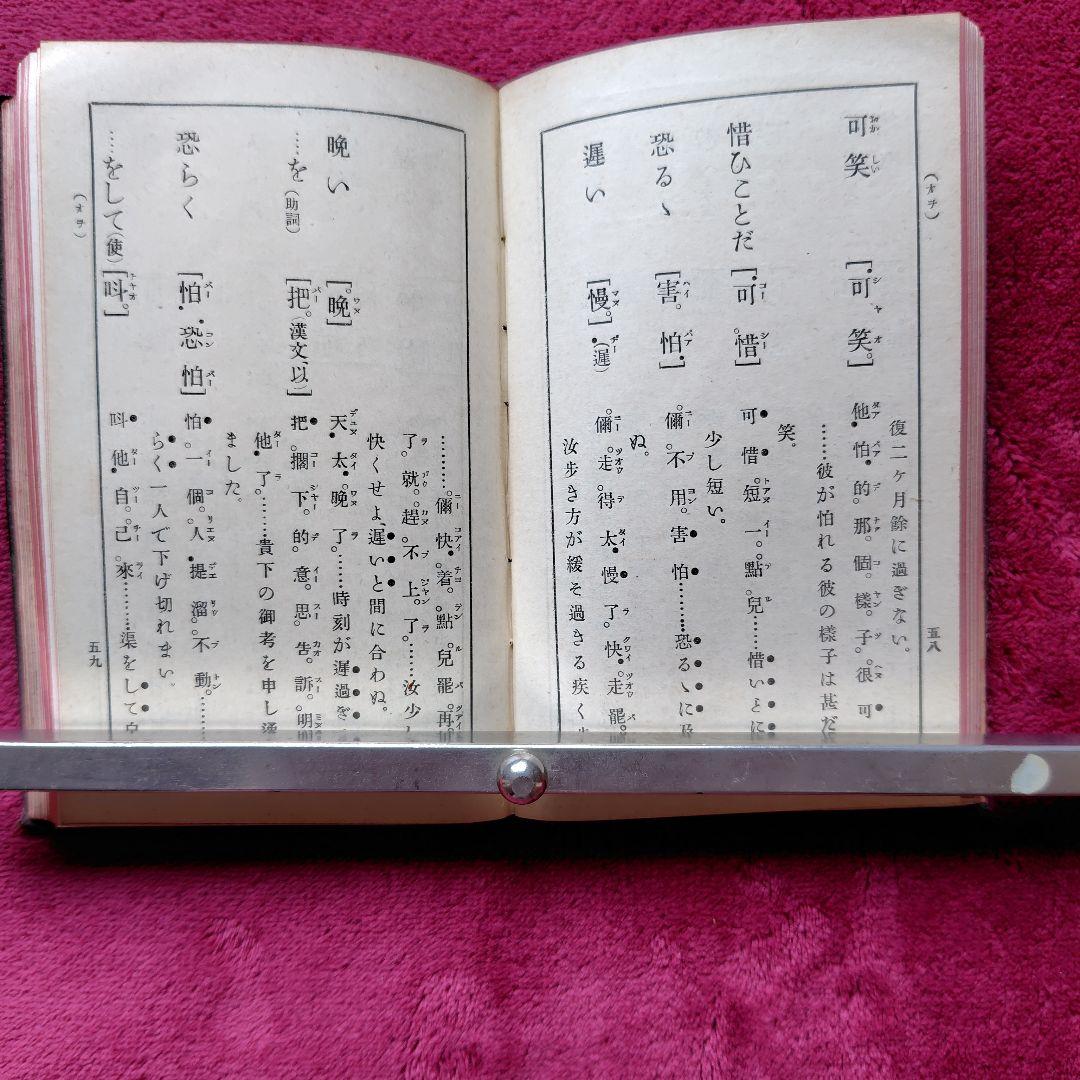 (オヲ)
復二ケ月餘に過ぎない。
可笑しい [可笑] 他怕的那個樣子。很可
……彼が怕れる彼の樣子は甚だ
笑。
惜ひことだ [可惜] 可惜。短一點兒……惜いとに
少し短い。
恐るゝ [害怕] 儞不用害怕………恐るゝに及
ぬ。
遲い [慢。(遲)] 儞走得太慢了。快走罷。
汝步き方が緩そ過きる疾く
五八
………。儞快着點兒罷。再
了。就趕不上了……汝少し
快くせよ、遲いと間に合わぬ。
晩い [晩] 天太晩了。……時刻が遲過ぎ
……を(助詞) [把。(漢文、以)] 把擱下的意思告訴。明明
他了。……貴下の御考を申し
ました。
恐らく [怕・恐怕] 怕一個人提溜不動。……
らく一人で下げ切れまい。
……をして(使) [呌] 呌他自己來………渠をして自
(オヲ)
五九